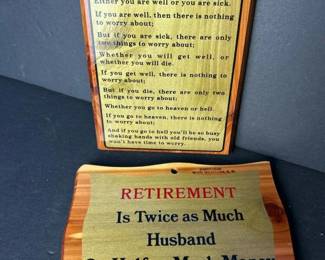 Either you are well or you are sick.
If you are well, then there is nothing
to worry about;
But if you are sick, there are only
two things to worry about;
Whether you will get well, or
whether you will die.
If you get well, there is nothing to
worry about;
But if you die, there are only two
things to worry about;
Whether you go to heaven or hell.
If you go to heaven, there is nothing
to worry about;
And if you go to hell you'll be so busy
shaking hands with old friends, you
won't have time to worry.
RETIREMENT
Is Twice as Much
Husband
Half as Much Money